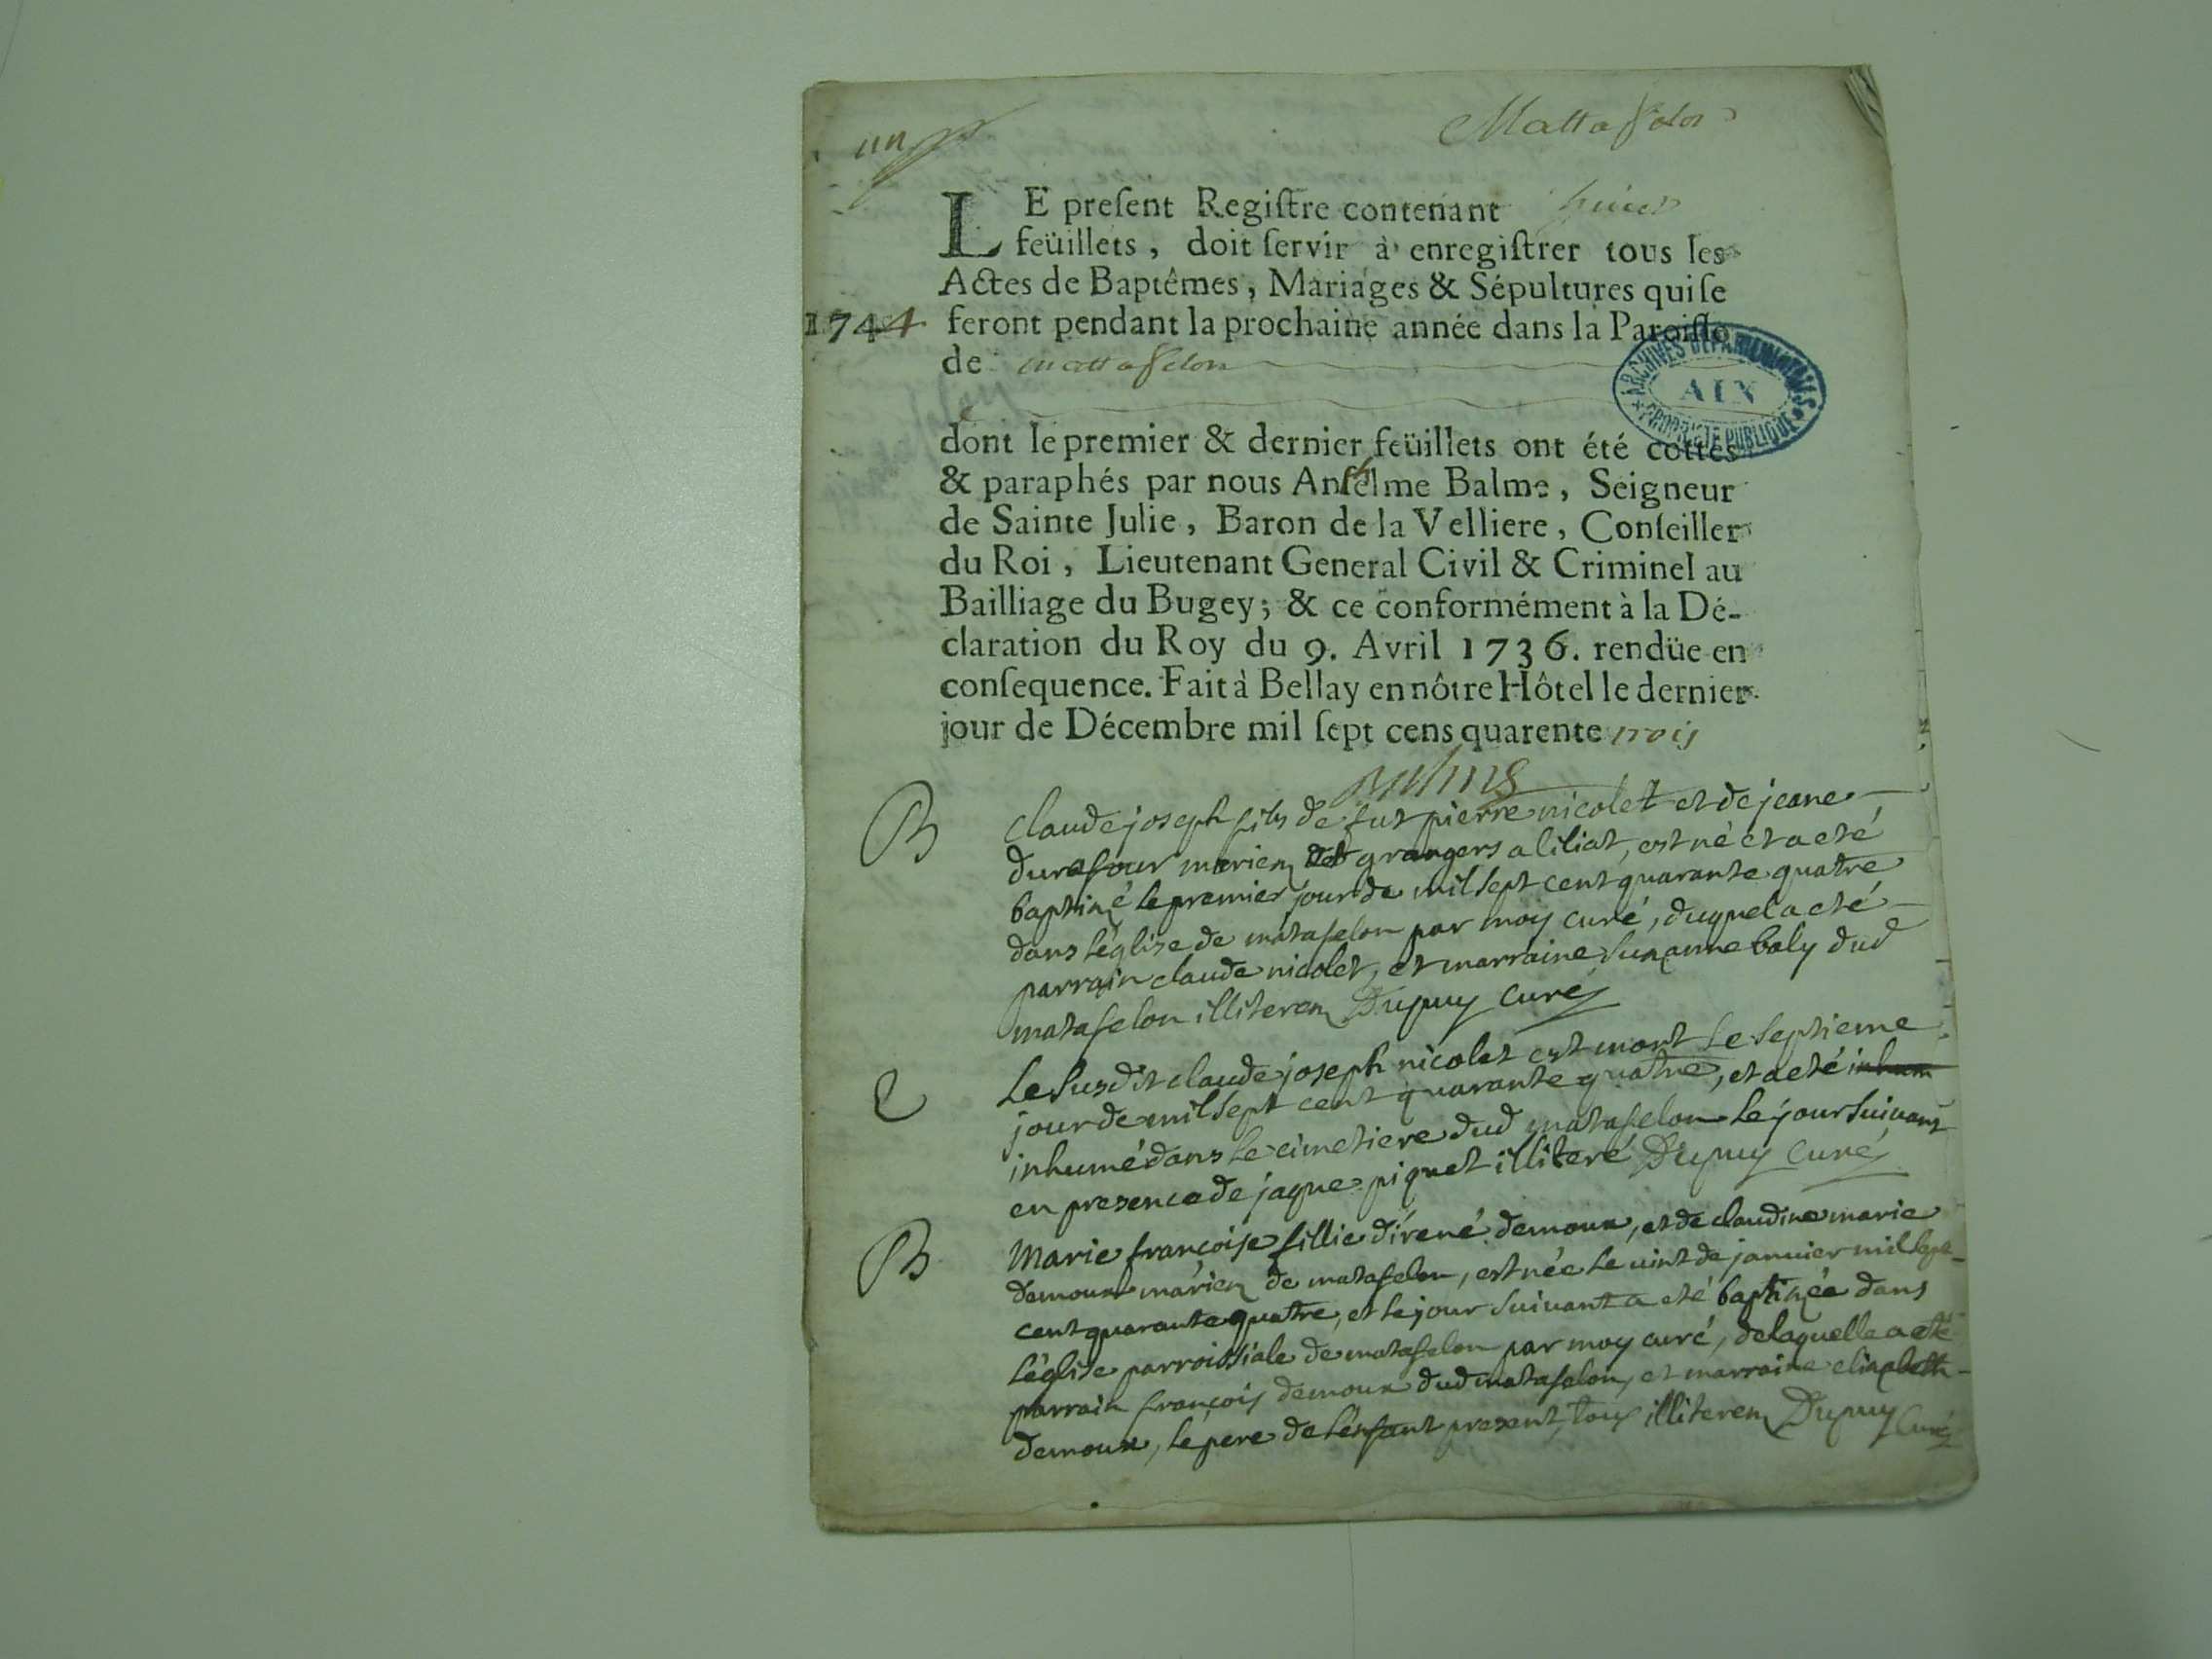 un
Mattafelon
LE preſent Regiſtre contenant huict
feüillets, doit ſervir à enregiſtrer tous les
Actes de Baptêmes, Mariages & Sépultures qui ſe
1744 feront pendant la prochaine année dans la Paroiſſe
de mattafelon
ARCHIVES DÉPARTEMENTALES
AIN
PROPRIÉTÉ PUBLIQUE
dont le premier & dernier feüillets ont été cottés
& paraphés par nous Anthelme Balme, Seigneur
de Sainte Julie, Baron de la Velliere, Conſeiller
du Roi, Lieutenant General Civil & Criminel au
Bailliage du Bugey; & ce conformément à la Dé-
claration du Roy du 9. Avril 1736. rendüe en
conſequence. Fait à Bellay en nôtre Hôtel le dernier
jour de Décembre mil ſept cens quarente trois
Balme
B claude joseph fils de fut pierre nicolet et de jeane
durafour mariez grangers a liliat, est né et a eté
baptizé le premier jour de mil sept cent quarante quatre
dans l'église de matafelon par moy curé, duquel a eté
parrain claude nicolet, et marraine suzanne baly dud
matafelon illiterez Dupuy curé
Le susdit claude joseph nicolet est mort le septieme
jour de mil sept cent quarante quatre, et a eté inhum
inhumé dans le cimetiere dud matafelon le jour suivant
en presence de jaque piquet illiteré Dupuy curé
B Marie françoise fillie d'irené demoux, et de claudine marie
demoux mariez de matafelon, est née le vint de janvier mil sept
cent quarante quatre, et le jour suivant a eté baptizée dans
l'église parroissiale de matafelon par moy curé, de laquelle a eté
parrain françois demoux dud matafelon, et marraine elizabeth
demoux, le pere de l'enfant present, tous illiterez Dupuy curé